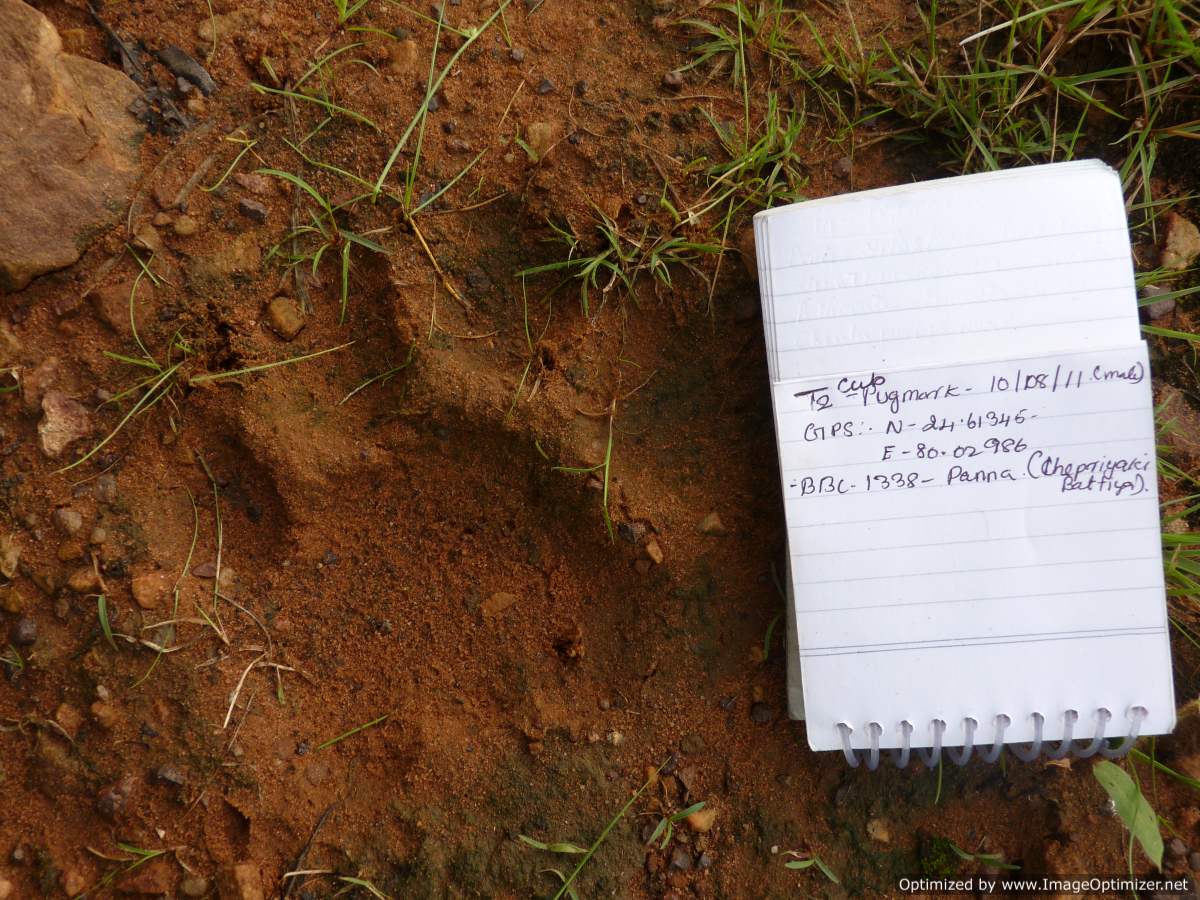 T2 cub Pugmark - 10/08/11 (male)
GPS:. N - 24.61345 -
E - 80.02986
- BBC - 1338 - Panna (Chepriyaki
Battiya).
Optimized by www.ImageOptimizer.net